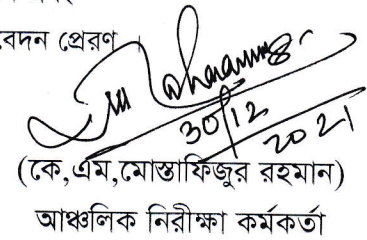 বেদন প্রেরণ
30/12
2021
(কে,এম,মোস্তাফিজুর রহমান)
আঞ্চলিক নিরীক্ষা কর্মকর্তা